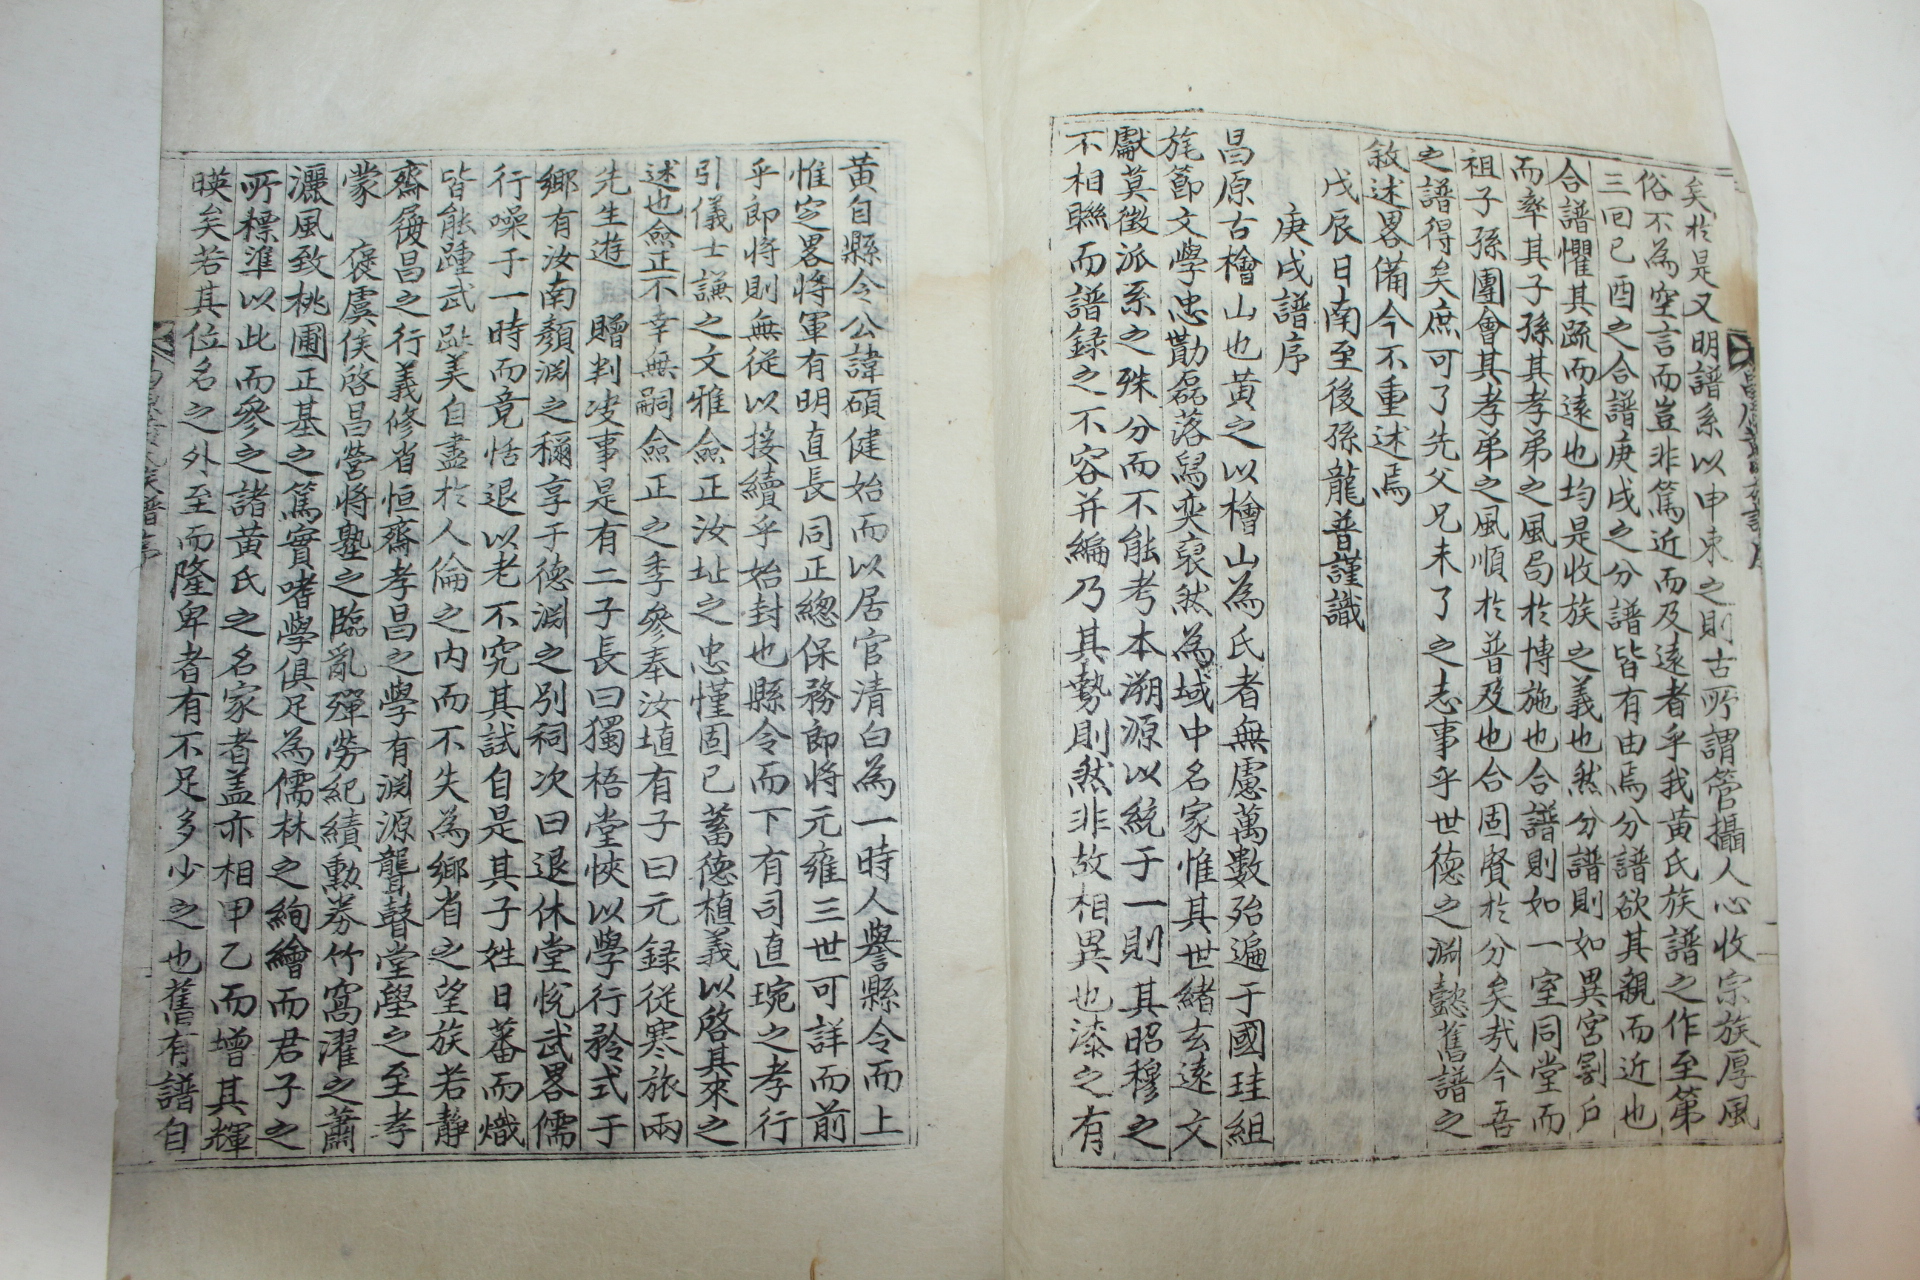 矣於是又明譜系以申束之則古所謂管攝人心收宗族厚風
俗不為空言而豈非篤近而及遠者乎我黃氏族譜之作至第
三回己酉之合譜庚戌之分譜皆有由焉分譜欲其親而近也
合譜懼其疏而遠也均是收族之義也然分譜則如異宮割戶
而率其子孫其孝弟之風局於博施也合譜則如一室同堂而
祖子孫團會其孝弟之風順於普及也合固賢於分矣哉今吾
之譜得矣庶可了先父兄未了之志事乎世德之淵懿舊譜之
敘述畧備今不重述焉
戊辰日南至後孫龍普謹識
庚戌譜序
昌原古檜山也黃之以檜山為氏者無慮萬數殆遍于國珪組
旄節文學忠勳磊落舄奕裒然為域中名家惟其世緒玄遠文
獻莫徵派系之殊分而不能考本溯源以統于一則其昭穆之
不相聯而譜録之不容并編乃其勢則然非故相異也漆之有
黃自縣令公諱碩健始而以居官清白為一時人譽縣令而上
惟定畧將軍有明直長同正總保務郎將元雍三世可詳而前
乎郎將則無從以接續乎始封也縣令而下有司直琬之孝行
引儀士謙之文雅僉正汝址之忠慬固已蓄德植義以啓其來之
述也僉正不幸無嗣僉正之季參奉汝埴有子曰元録從寒旅兩
先生遊 贈判决事是有二子長曰獨梧堂悏以學行矜式于
鄉有汝南顏淵之稱享于德淵之別祠次曰退休堂悅武畧儒
行噪于一時而竟恬退以老不究其試自是其子姓日蕃而熾
皆能踵武趾美自盡於人倫之內而不失為鄉省之望族若靜
齋後昌之行義修省恒齋孝昌之學有淵源聾瞽堂壆之至孝
蒙 褒虞侯啓昌營將塾之臨亂殫勞紀績勳券竹窩濯之蕭
灑風致桃圃正基之篤實嗜學俱足為儒林之絢繪而君子之
所標準以此而參之諸黃氏之名家者盖亦相甲乙而增其輝
暎矣若其位名之外至而隆卑者有不足多少之也舊有譜自